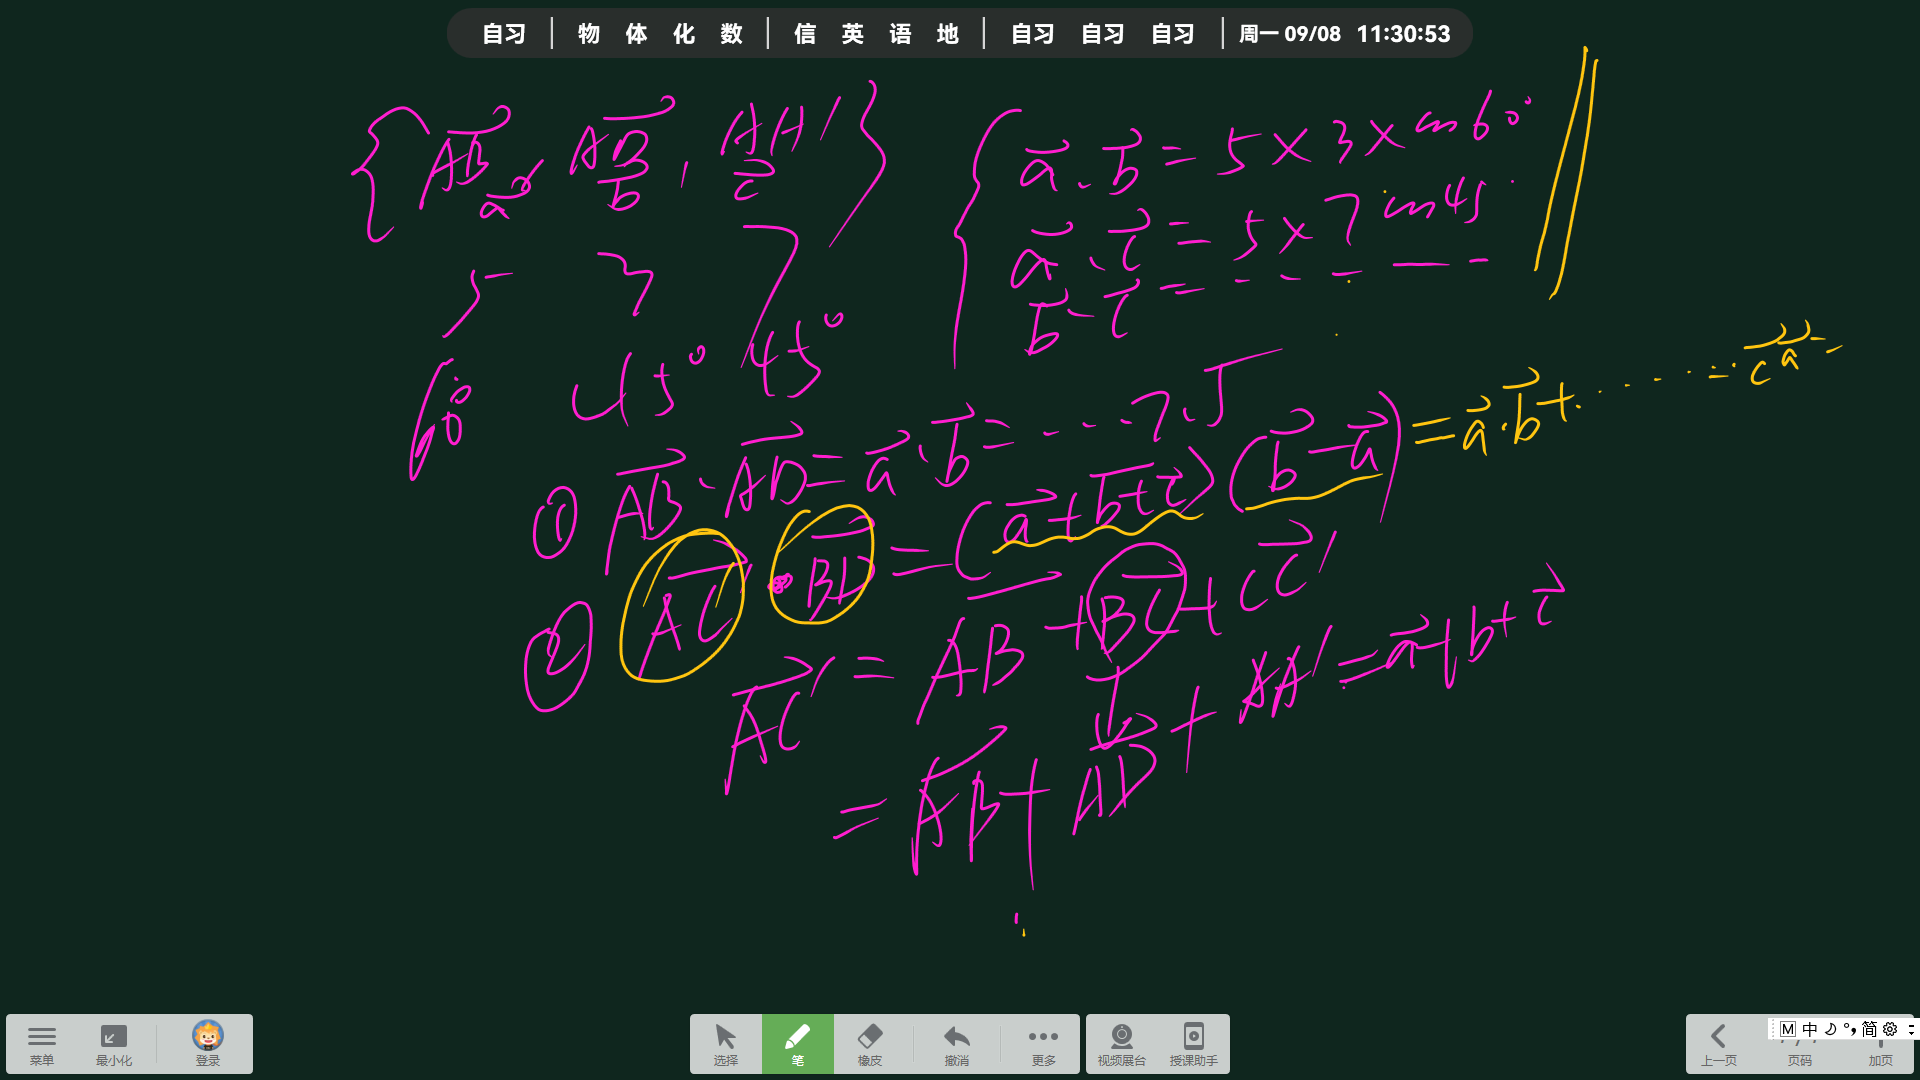 自习 | 物 体 化 数 | 信 英 语 地 | 自习 自习 自习 | 周一 09/08 11:30:53
{AB, AD, AA'}
a b c
5 3 7
60° 45° 45°
a·b = 5×3×cos60°
a·c = 5×7cos45
b·c = -----
① AB·AD = a·b = ...
② AC'·BD = (a+b+c)(b-a) = a·b+......c a
AC' = AB+BC+CC'
= AB+AD+AA' = a+b+c
菜单 最小化 登录
选择 笔 橡皮 撤消 更多
视频展台 授课助手
上一页 页码 加页
M 中 简